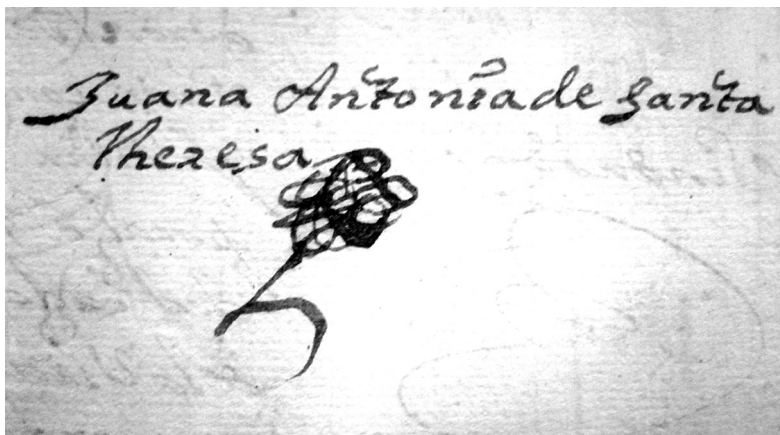 Juana Antonia de Santa
Theresa